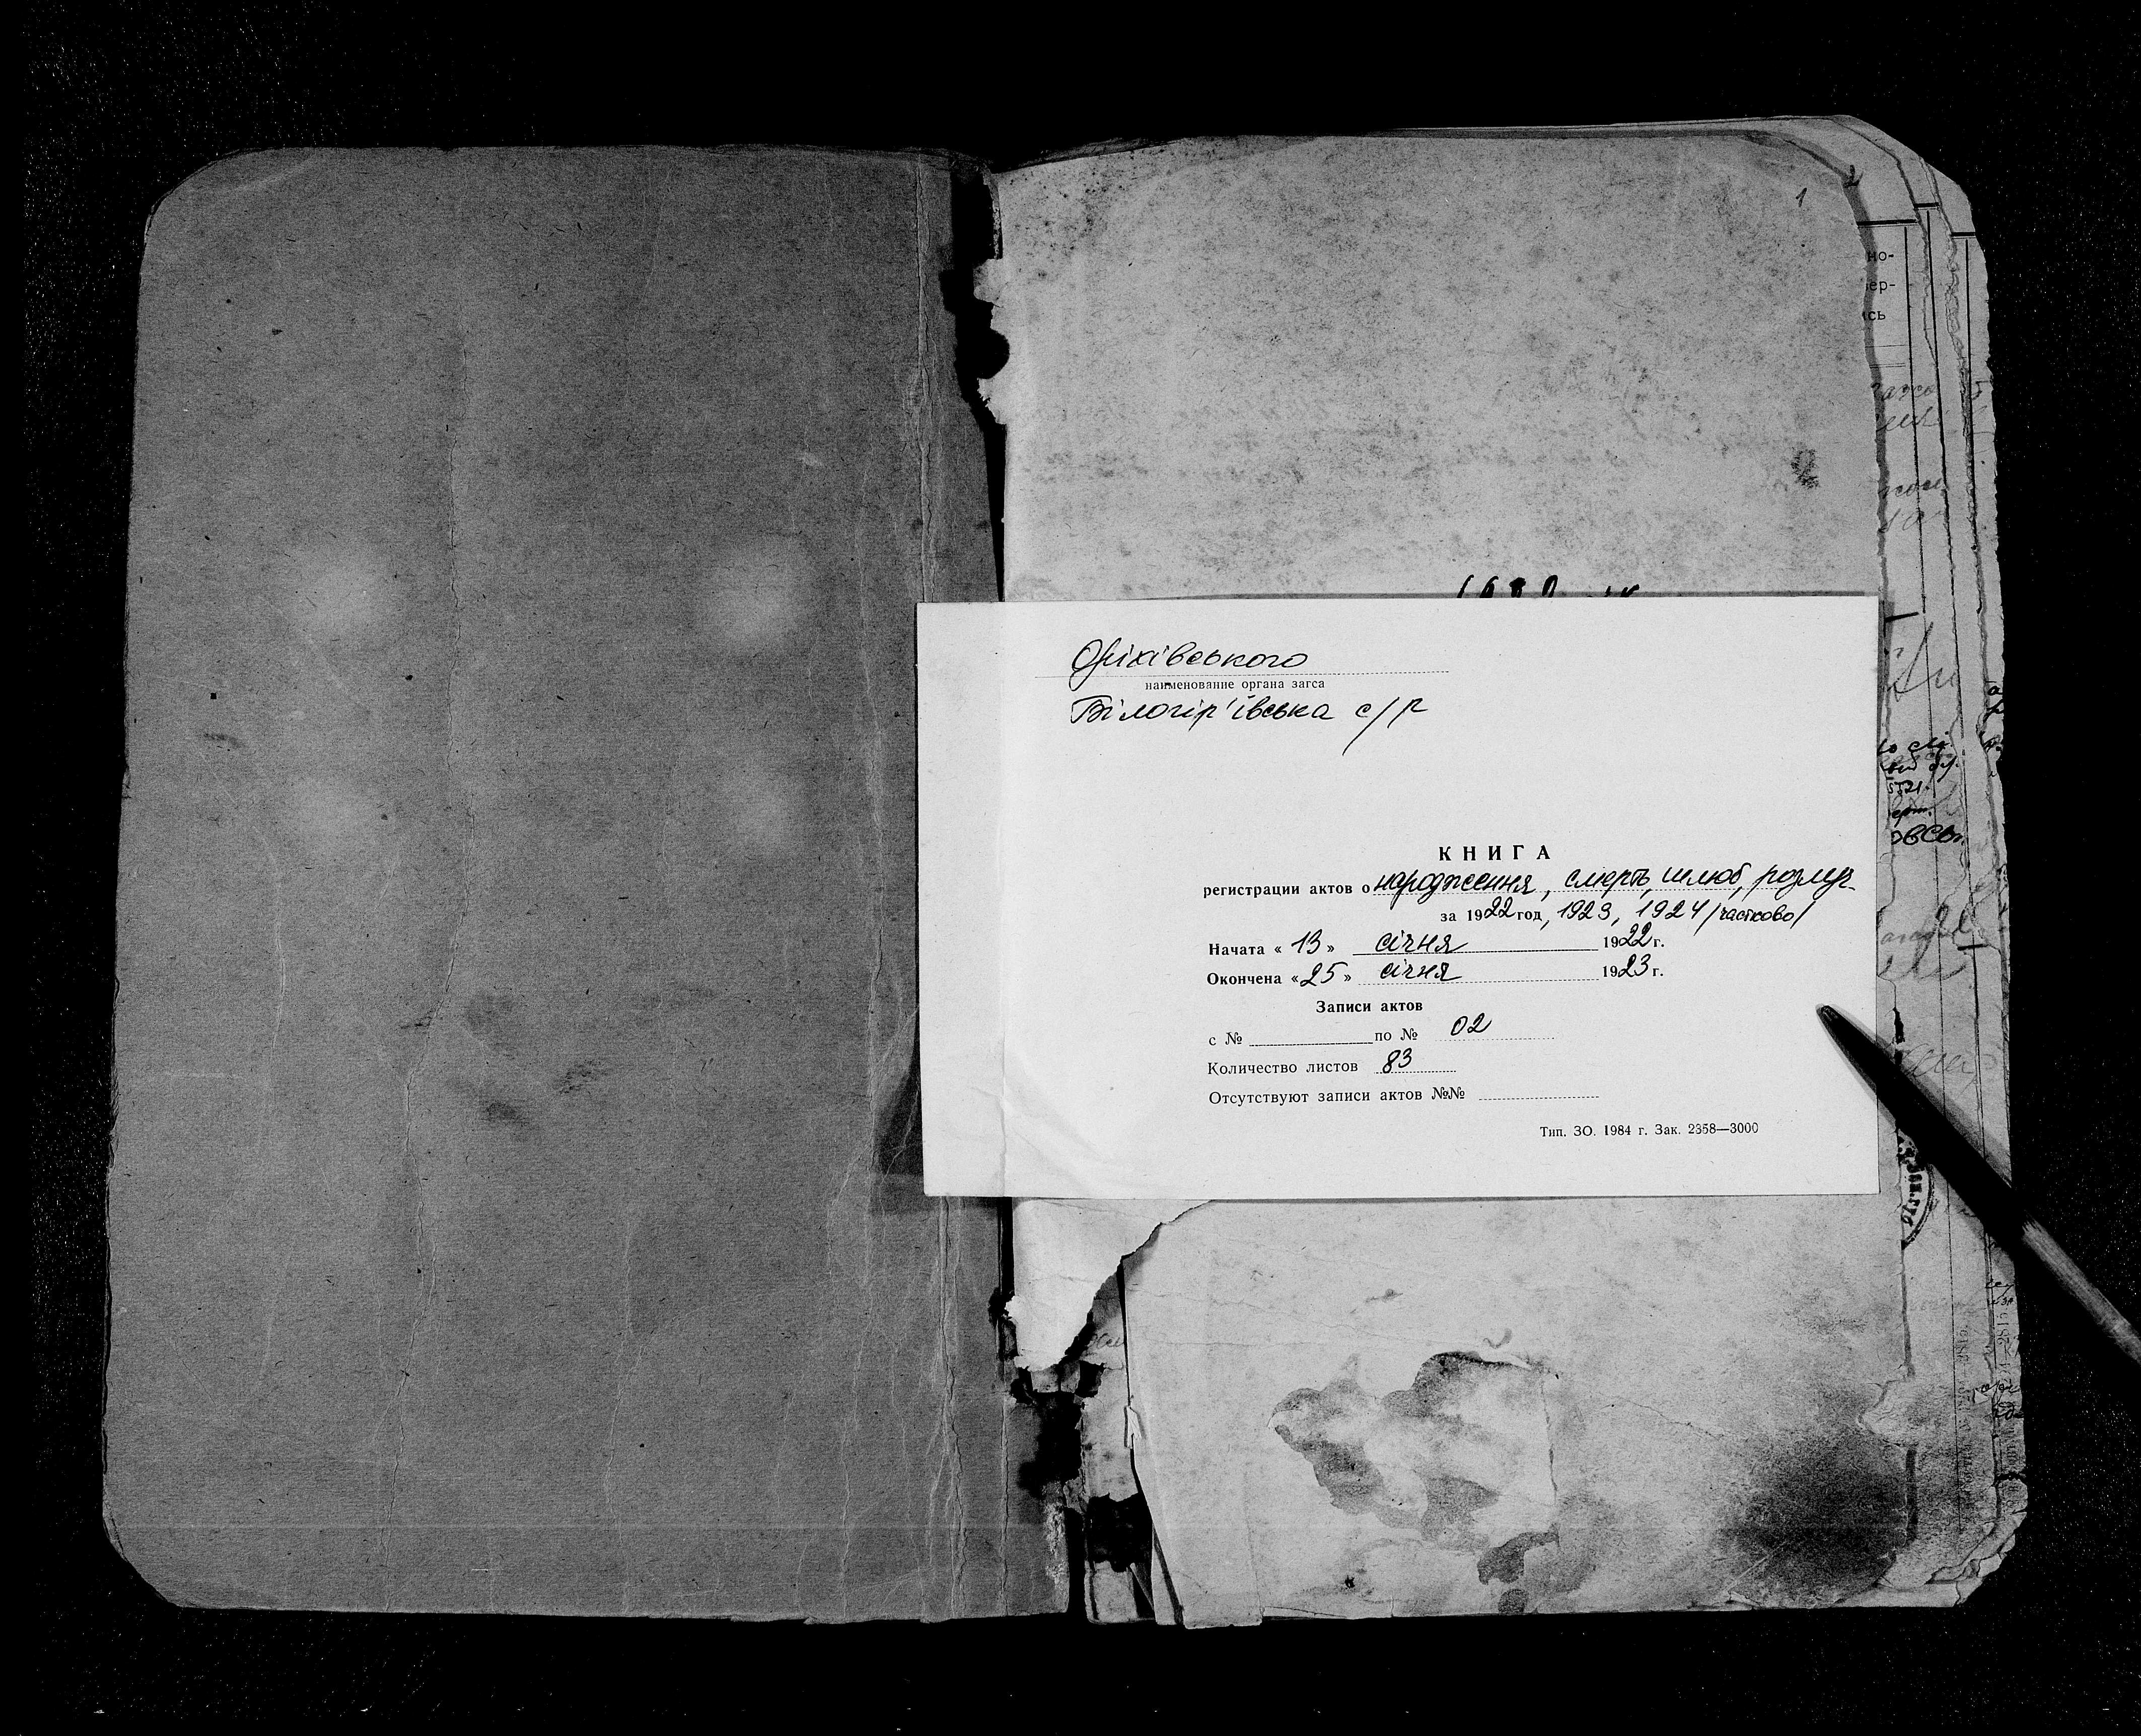 1
2
но-
ер-
сь
Оріхівського
наименование органа загса
Білогір'ївська с/р
КНИГА
регистрации актов о народження, смерть, шлюб, розлуч.
за 1922 год, 1923, 1924 /частково/
Начата « 13 » січня 1922 г.
Окончена «25» січня 1923 г.
Записи актов
с № по № 02
Количество листов 83
Отсутствуют записи актов №№
Тип. ЗО. 1984 г. Зак. 2358—3000